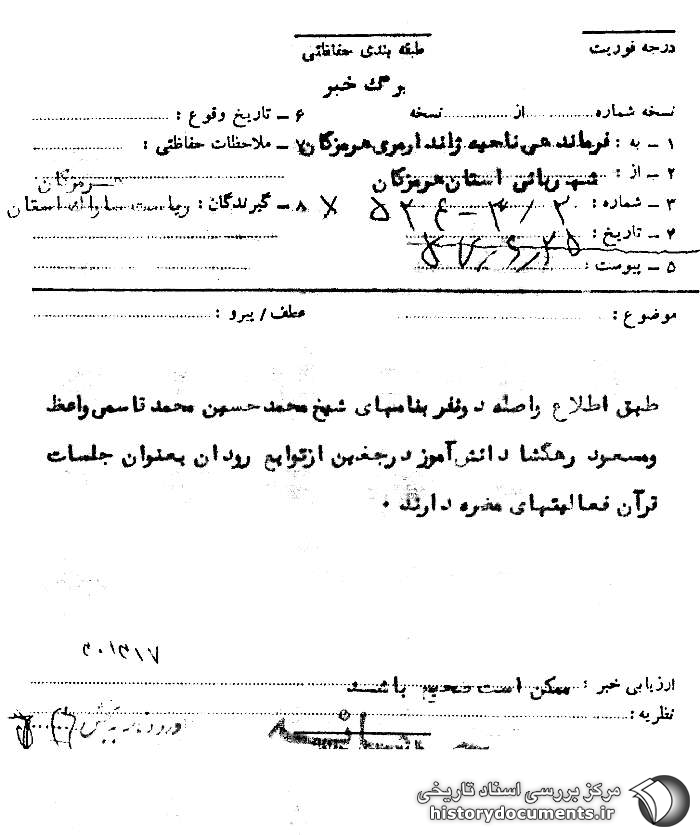 درجه فوریت
طبقه بندی حفاظتی
برگ خبر
نسخه شماره .......... از .......... نسخه
۱ ــ به : فرماندهی ناحیه ژاندارمری هرمزگان
۲ ــ از : شهربانی استان هرمزگان
۳ ــ شماره : ۵۲۴-۳/۲
۴ ــ تاریخ : ۵۷/۶/۲۵
۵ ــ پیوست :
۶ ــ تاریخ وقوع :
۷ ــ ملاحظات حفاظتی :
۸ ــ گیرندگان : ریاست ساواک استان هرمزگان
موضوع :
عطف / پیرو :
طبق اطلاع واصله دو نفر بنامهای شیخ محمد حسین محمد قاسمی واعظ
و مسعود رهگشا دانش آموز در جغین از توابع رودان بعنوان جلسات
قرآن فعالیتهای مضره دارند .
ارزیابی خبر : ممکن است صحیح باشد
نظریه :
مرکز بررسی اسناد تاریخی
historydocuments.ir